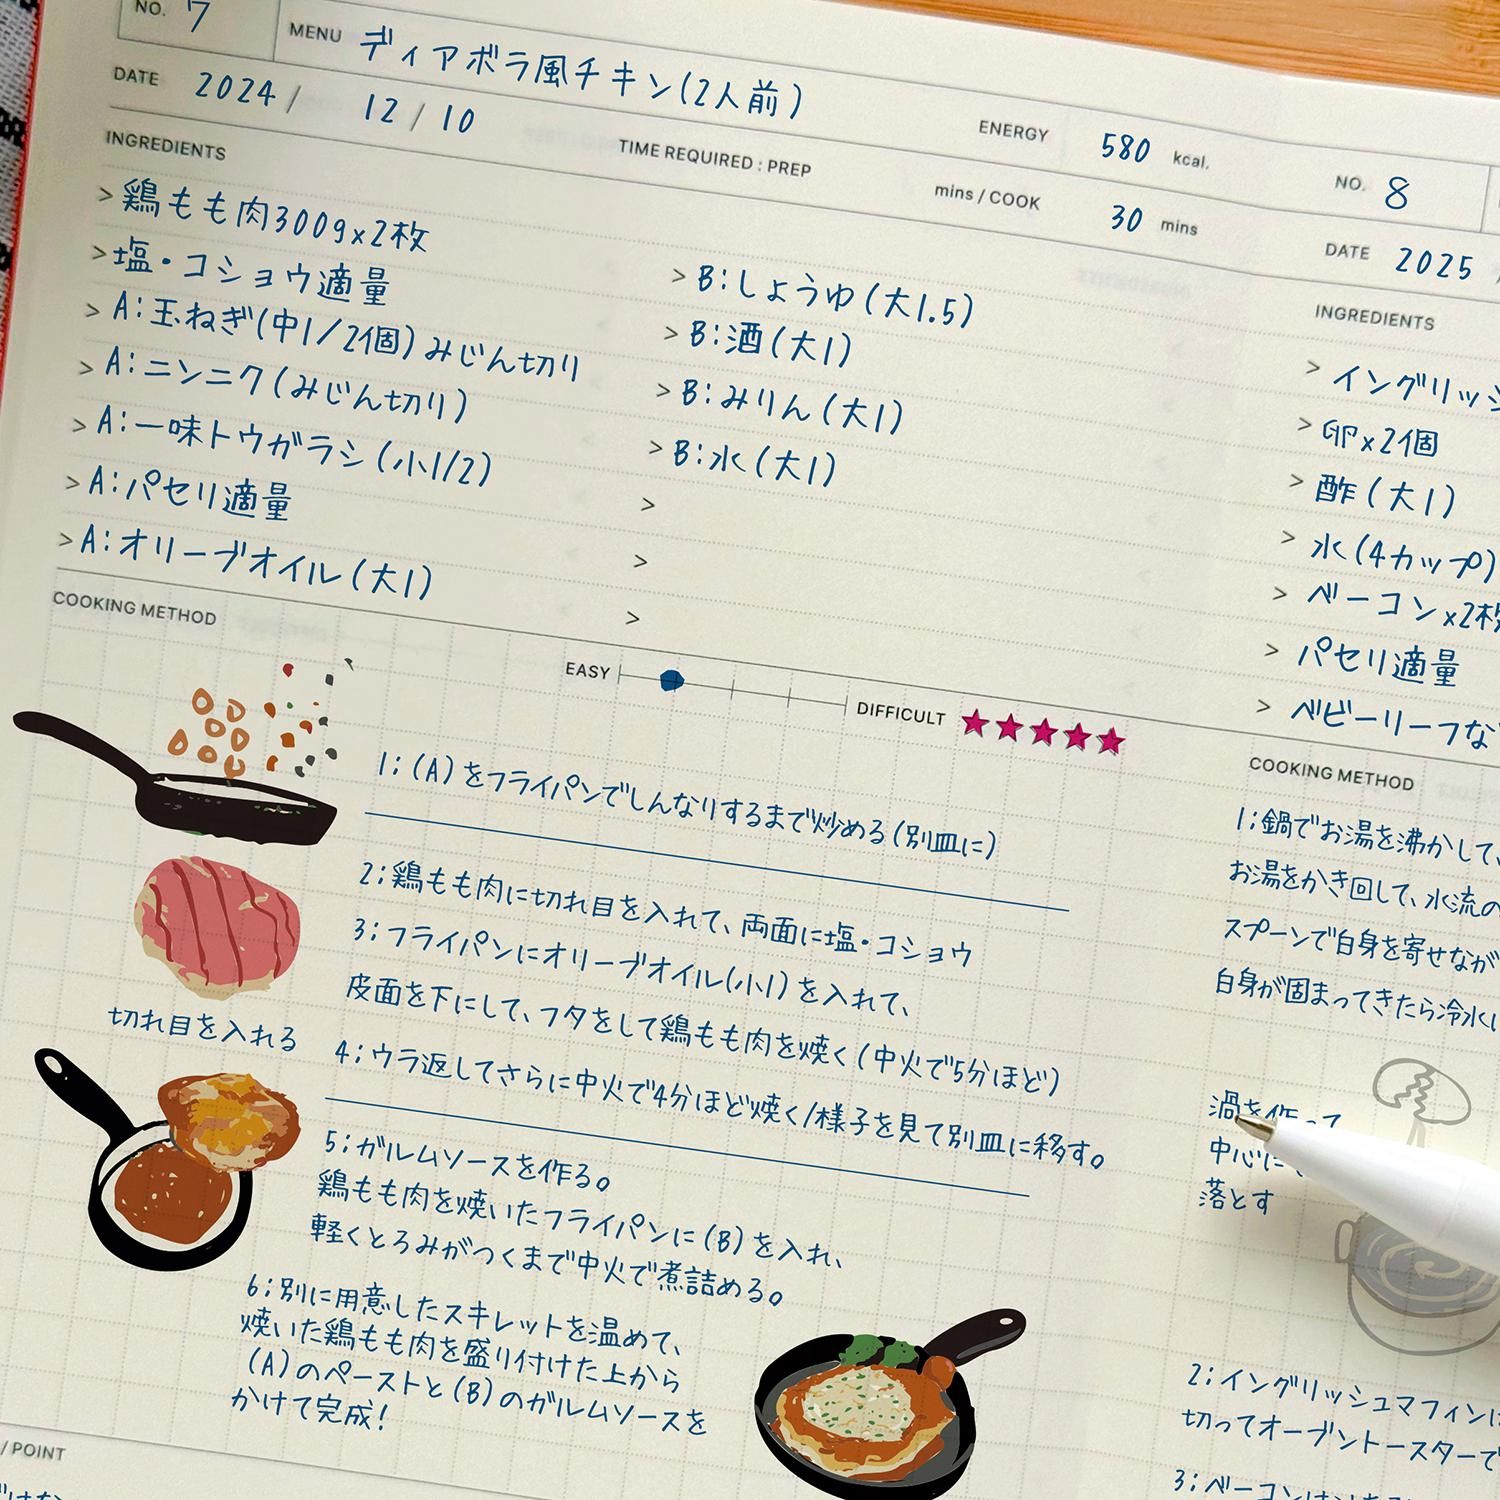 NO. 7
MENU ディアボラ風チキン(2人前)
ENERGY 580 kcal.
DATE 2024/ 12/10
TIME REQUIRED : PREP mins / COOK 30 mins
INGREDIENTS
> 鶏もも肉300g×2枚
> 塩・コショウ適量
> A:玉ねぎ(中1/2個)みじん切り
> A:ニンニク(みじん切り)
> A:一味トウガラシ(小1/2)
> A:パセリ適量
> A:オリーブオイル(大1)
> B:しょうゆ(大1.5)
> B:酒(大1)
> B:みりん(大1)
> B:水(大1)
>
>
>
COOKING METHOD
EASY DIFFICULT ★★★★★
1;(A)をフライパンでしんなりするまで炒める(別皿に)
2;鶏もも肉に切れ目を入れて、両面に塩・コショウ
3;フライパンにオリーブオイル(小1)を入れて、
皮面を下にして、フタをして鶏もも肉を焼く(中火で5分ほど)
切れ目を入れる
4;ウラ返してさらに中火で4分ほど焼く/様子を見て別皿に移す。
5;ガルムソースを作る。
鶏もも肉を焼いたフライパンに(B)を入れ、
軽くとろみがつくまで中火で煮詰める。
6;別に用意したスキレットを温めて、
焼いた鶏もも肉を盛り付けた上から
(A)のペーストと(B)のガルムソースを
かけて完成!
/ POINT
NO. 8
DATE 2025
INGREDIENTS
> イングリッシ
> 卵×2個
> 酢(大1)
> 水(4カップ)
> ベーコン×2枚
> パセリ適量
> ベビーリーフな
COOKING METHOD
1;鍋でお湯を沸かして、
お湯をかき回して、水流の
スプーンで白身を寄せなが
白身が固まってきたら冷水に
渦を作って
中心に
落とす
2;イングリッシュマフィンに
切ってオーブントースターで
3;ベーコンは